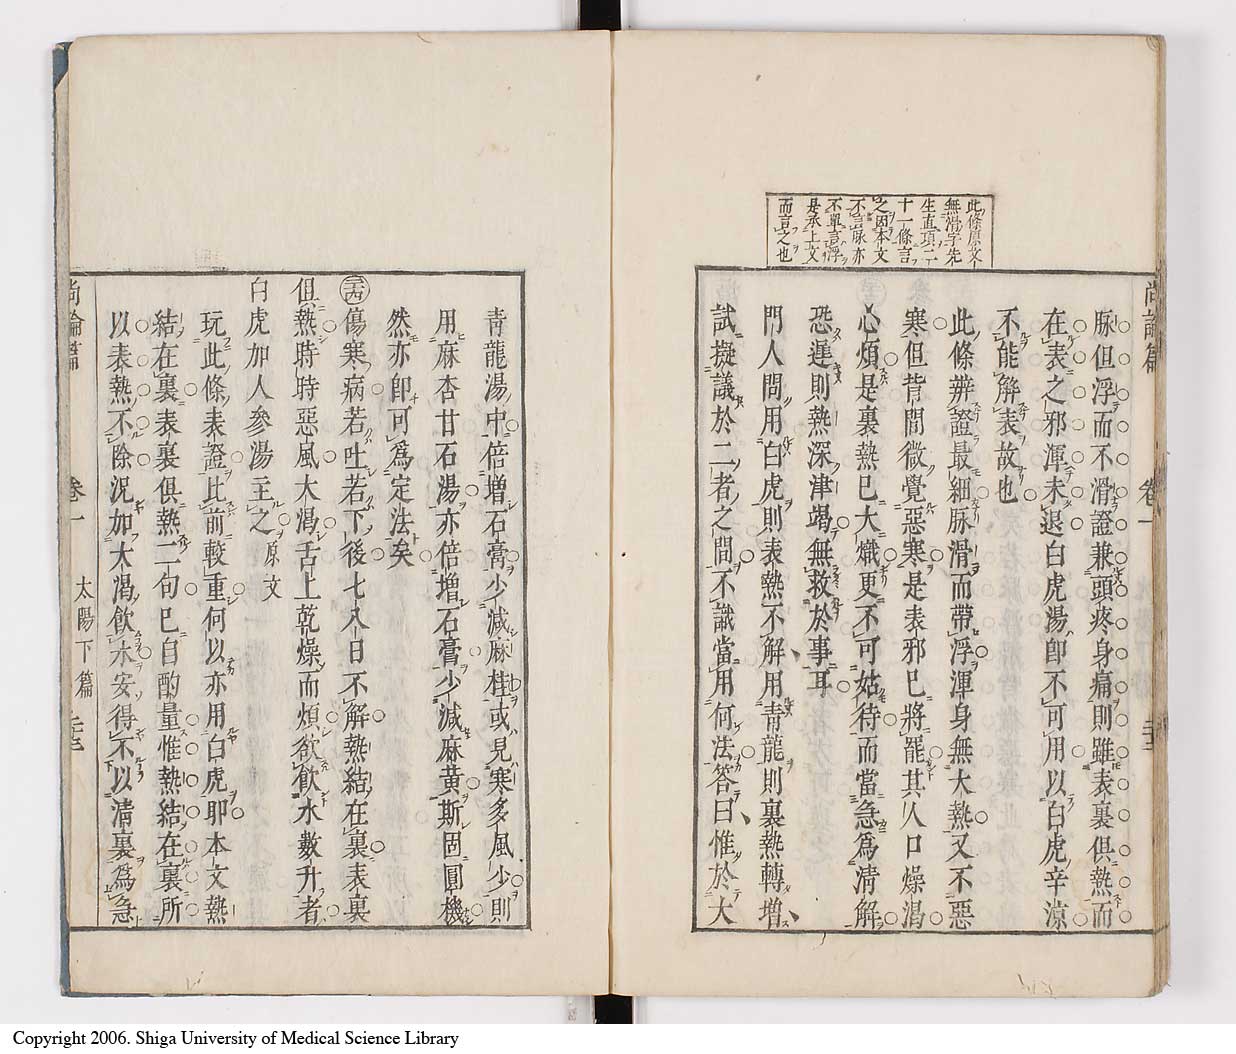 此條原文
無滑字先
生直項二
十一條言
之因本文
不言脉亦
不單言浮
是承上文
而言之也
尚論篇 卷一
脉但浮而不滑證兼頭疼身痛則雖表裏俱熱而
在表之邪渾未退白虎湯即不可用以白虎辛涼
不能解表故也
此條辨證最細脉滑而帶浮渾身無大熱又不惡
寒但背間微覺惡寒是表邪已將罷其人口燥渴
心煩是裏熱已大熾更不可姑待而當急爲清解
恐遲則熱深津竭無救於事耳
門人問用白虎則表熱不解用青龍則裏熱轉增
試擬議於二者之間不識當用何法答曰惟於大
青龍湯中倍增石膏少減麻桂或見寒多風少則
用麻杏甘石湯亦倍增石膏少減麻黄斯固圓機
然亦即可爲定法矣
傷寒病若吐若下後七八日不解熱結在裏表裏
俱熱時時惡風大渴舌上乾燥而煩欲飲水數升者
白虎加人參湯主之原文
玩此條表證比前較重何以亦用白虎耶本文熱
結在裏表裏俱熱二句已自酌量惟熱結在裏所
以表熱不除况加大渴飲水安得不以清裏爲急
尚論篇 卷一 太陽下篇
Copyright 2006. Shiga University of Medical Science Library